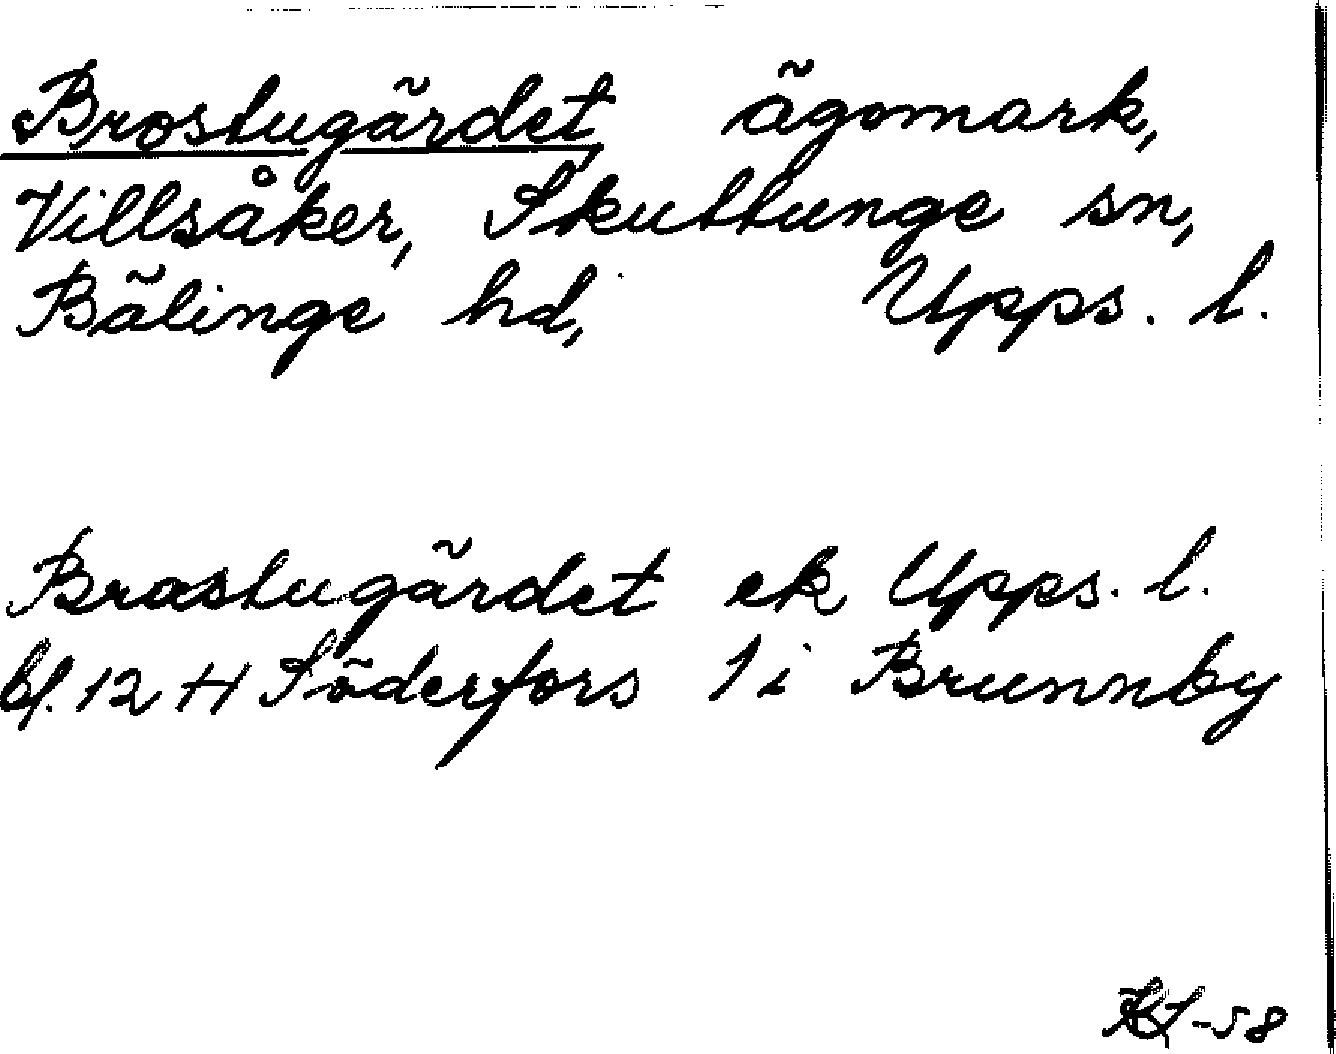 Brostugärdet ägomark,
Villsåker, Skuttunge sn,
Bälinge hd, Upps. l.
Brastugärdet ek Upps. l.
bl. 12 H Söderfors 1 i Brunnby
-58